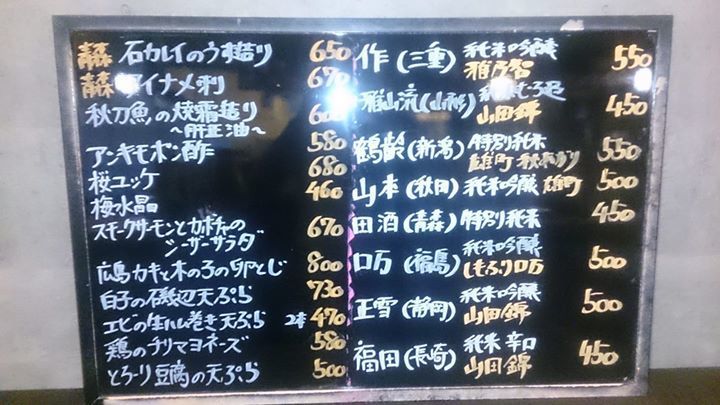 青森 石カレイのうす造り 650
青森 アイナメ刺 670
秋刀魚の焼霜造り
〜肝正油〜
アンキモポン酢 580
桜ユッケ 680
梅水晶 460
スモークサーモンとカボチャの
シーザーサラダ 670
広島カキと木の子の卵とじ 800
白子の磯辺天ぷら 730
エビの生ハム巻き天ぷら 2本 470
鶏のチリマヨネーズ 580
とろーり豆腐の天ぷら 500
作(三重) 純米吟醸 雅乃智 550
雅山流(山形) 山田錦 450
鶴齢(新潟) 特別純米 雄町 秋あがり 550
山本(秋田) 純米吟醸 雄町 500
田酒(青森) 特別純米 450
ロ万(福島) 純米吟醸 しもふりロ万 500
正雪(静岡) 純米吟醸 山田錦 500
福田(長崎) 純米 辛口 山田錦 450